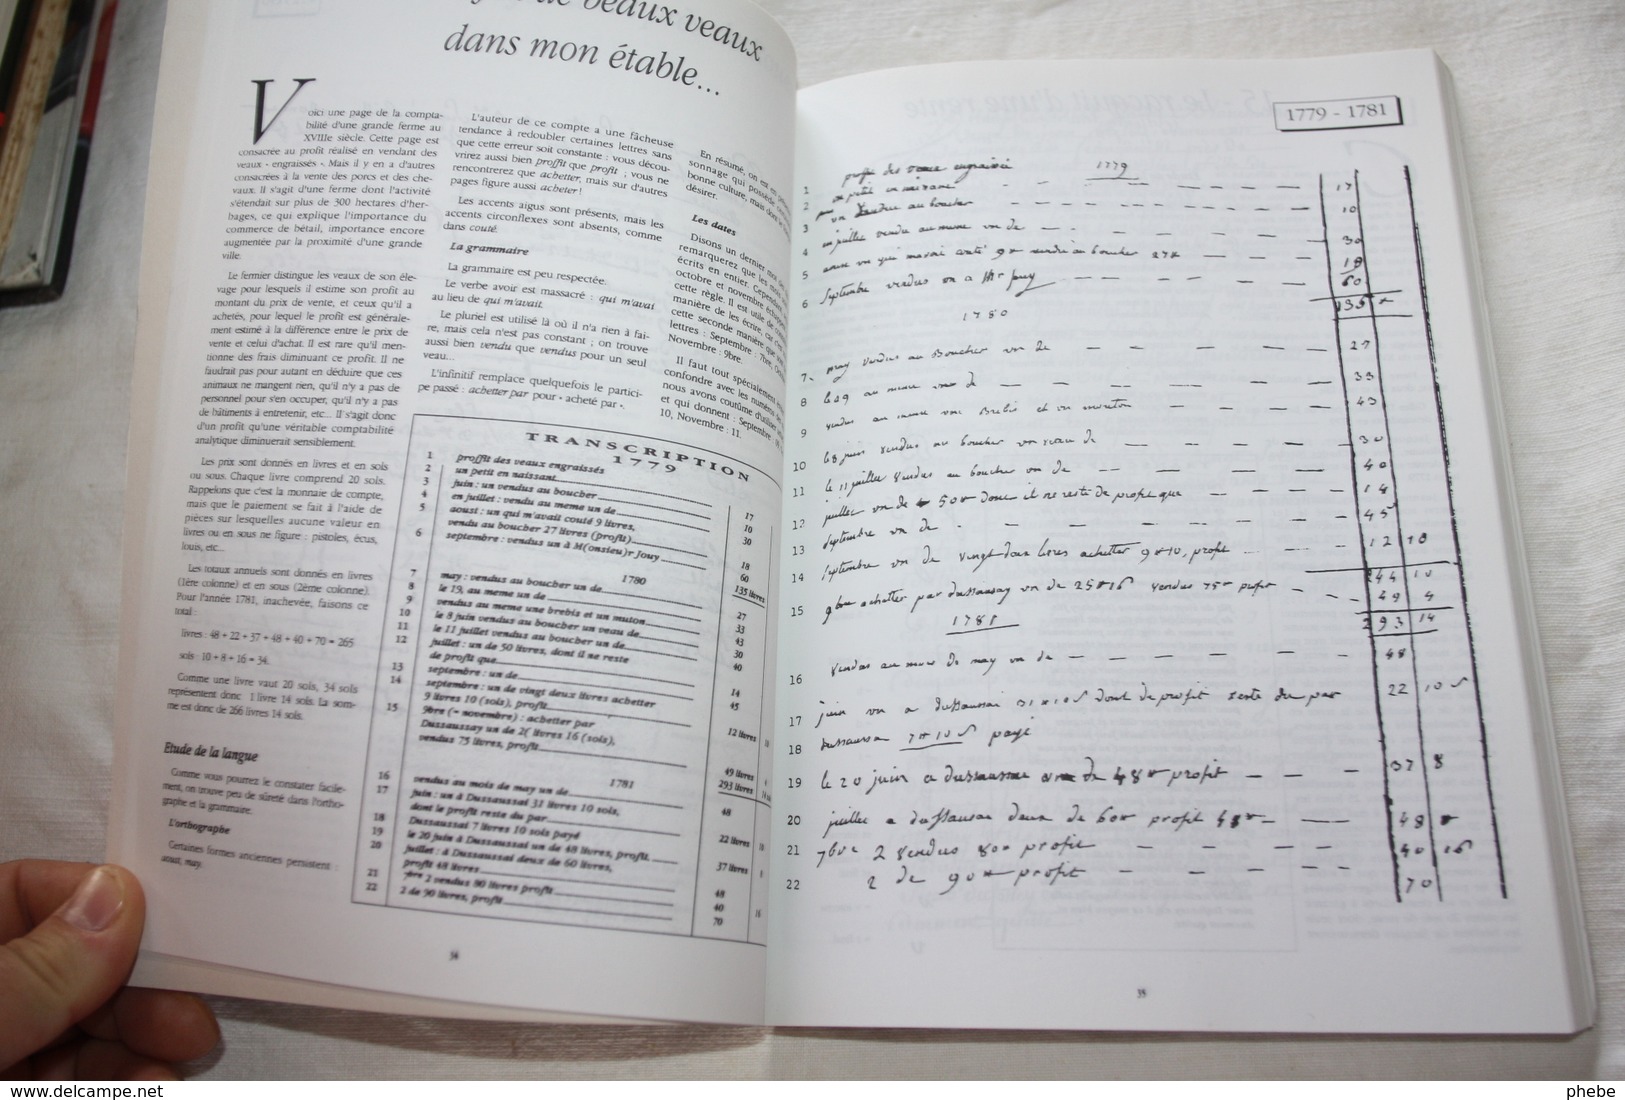 de beaux veaux
dans mon étable...
Voici une page de la compta-
bilité d'une grande ferme au
XVIIIe siècle. Cette page est
consacrée au profit réalisé en vendant des
veaux « engraissés ». Mais il y en a d'autres
consacrées à la vente des porcs et des che-
vaux. Il s'agit d'une ferme dont l'activité
s'étendait sur plus de 300 hectares d'her-
bages, ce qui explique l'importance du
commerce de bétail, importance encore
augmentée par la proximité d'une grande
ville.
Le fermier distingue les veaux de son éle-
vage pour lesquels il estime son profit au
montant du prix de vente, et ceux qu'il a
achetés, pour lequel le profit est générale-
ment estimé à la différence entre le prix de
vente et celui d'achat. Il est rare qu'il men-
tionne des frais diminuant ce profit. Il ne
faudrait pas pour autant en déduire que ces
animaux ne mangent rien, qu'il n'y a pas de
personnel pour s'en occuper, qu'il n'y a pas
de bâtiments à entretenir, etc... Il s'agit donc
d'un profit qu'une véritable comptabilité
analytique diminuerait sensiblement.
Les prix sont donnés en livres et en sols
ou sous. Chaque livre comprend 20 sols.
Rappelons que c'est la monnaie de compte,
mais que le paiement se fait à l'aide de
pièces sur lesquelles aucune valeur en
livres ou en sous ne figure : pistoles, écus,
louis, etc...
Les totaux annuels sont donnés en livres
(1ère colonne) et en sous (2ème colonne).
Pour l'année 1781, inachevée, faisons ce
total :
livres : 48 + 22 + 37 + 48 + 40 + 70 = 265
sols : 10 + 8 + 16 = 34.
Comme une livre vaut 20 sols, 34 sols
représentent donc 1 livre 14 sols. La som-
me est donc de 266 livres 14 sols.
Etude de la langue
Comme vous pourrez le constater facile-
ment, on trouve peu de sûreté dans l'ortho-
graphe et la grammaire.
L'orthographe
Certaines formes anciennes persistent :
aoust, may.
L'auteur de ce compte a une fâcheuse
tendance à redoubler certaines lettres sans
que cette erreur soit constante : vous décou-
vrirez aussi bien proffit que profit ; vous ne
rencontrerez que achetter, mais sur d'autres
pages figure aussi acheter !
Les accents aigus sont présents, mais les
accents circonflexes sont absents, comme
dans couté.
La grammaire
La grammaire est peu respectée.
Le verbe avoir est massacré : qui m'avai
au lieu de qui m'avait.
Le pluriel est utilisé là où il n'a rien à fai-
re, mais cela n'est pas constant ; on trouve
aussi bien vendu que vendus pour un seul
veau...
L'infinitif remplace quelquefois le partici-
pe passé : achetter par pour « acheté par ».
En résumé, on est en
sonnage qui possède
bonne culture, mais dont
désirer.
Les dates
Disons un dernier mot
remarquerez que les mois
écrits en entier. Cependant
octobre et novembre échappent
cette règle. Il est utile de
manière de les écrire, car
cette seconde manière que
lettres : Septembre : 7bre,
Novembre : 9bre.
Il faut tout spécialement
confondre avec les numéros
nous avons coutume d'utiliser
et qui donnent : Septembre : 09,
10, Novembre : 11.
TRANSCRIPTION
1779
1 proffit des veaux engraissés
2 un petit en naissant 17
3 juin : un vendus au boucher 10
4 en juillet : vendu au meme un de 30
5 aoust : un qui m'avait couté 9 livres,
vendu au boucher 27 livres (profit) 18
6 septembre : vendus un à M(onsieu)r Jouy 60
135 livres
1780
7 may : vendus au boucher un de 27
8 le 19, au meme un de 33
9 vendus au meme une brebis et un muton 43
10 le 8 juin vendus au boucher un veau de 30
11 le 11 juillet vendus au boucher un de 40
12 juillet : un de 50 livres, dont il ne reste
de profit que 14
13 septembre : un de 45
14 septembre : un de vingt deux livres achetter
9 livres 10 (sols), profit 12 livres 10
15 9bre (= novembre) : achetter par
Dussaussay un de 2( livres 16 (sols),
vendus 75 livres, profit 49 livres 4
293 livres 14
1781
16 vendus au mois de may un de 48
17 juin : un à Dussaussai 31 livres 10 sols,
dont le profit reste du par 22 livres 10
18 Dussaussai 7 livres 10 sols payé
19 le 20 juin à Dussaussai un de 48 livres, profit 37 livres 8
20 juillet : à Dussaussai deux de 60 livres,
profit 48 livres 48
21 7bre 2 vendus 80 livres profit 40 16
22 2 de 90 livres, profit 70
34
1779 - 1781
1 proffit des veaux engraissés 1779
2 un petit en naissant 17
3 un vendus au boucher 10
4 en juillet vendu au meme un de 30
5 aoust un qui mavai couté 9# vendu au boucher 27# 18
6 septembre vendus un a Mr Jouy 60
135 #
1780
7 may vendus au Boucher un de 27
8 le 19 au meme un de 33
9 vendus au meme une Brebis et un mouton 43
10 le 8 juin vendus au boucher un veau de 30
11 le 11 juillet vendus au boucher un de 40
12 juillet un de 50# dont il ne reste de profit que 14
13 septembre un de 45
14 septembre un de vingt deux livres achetter 9#10, profit 12 10
244 10
15 9bre achetter par dussaussay un de 25#16 vendus 75# profit 49 4
293 14
1781
16 vendus au mois de may un de 48
17 juin un a dussaussai 31#10s dont de profit reste du par 22 10 s
18 dussaussai 7#10s payé
19 le 20 juin a dussaussai un de 48# profit 37 8
20 juillet a dussaussai deux de 60# profit 48# 48
21 7bre 2 vendus 80# profit 40 16
22 2 de 90# profit 70
35
www.delcampe.net
phebe